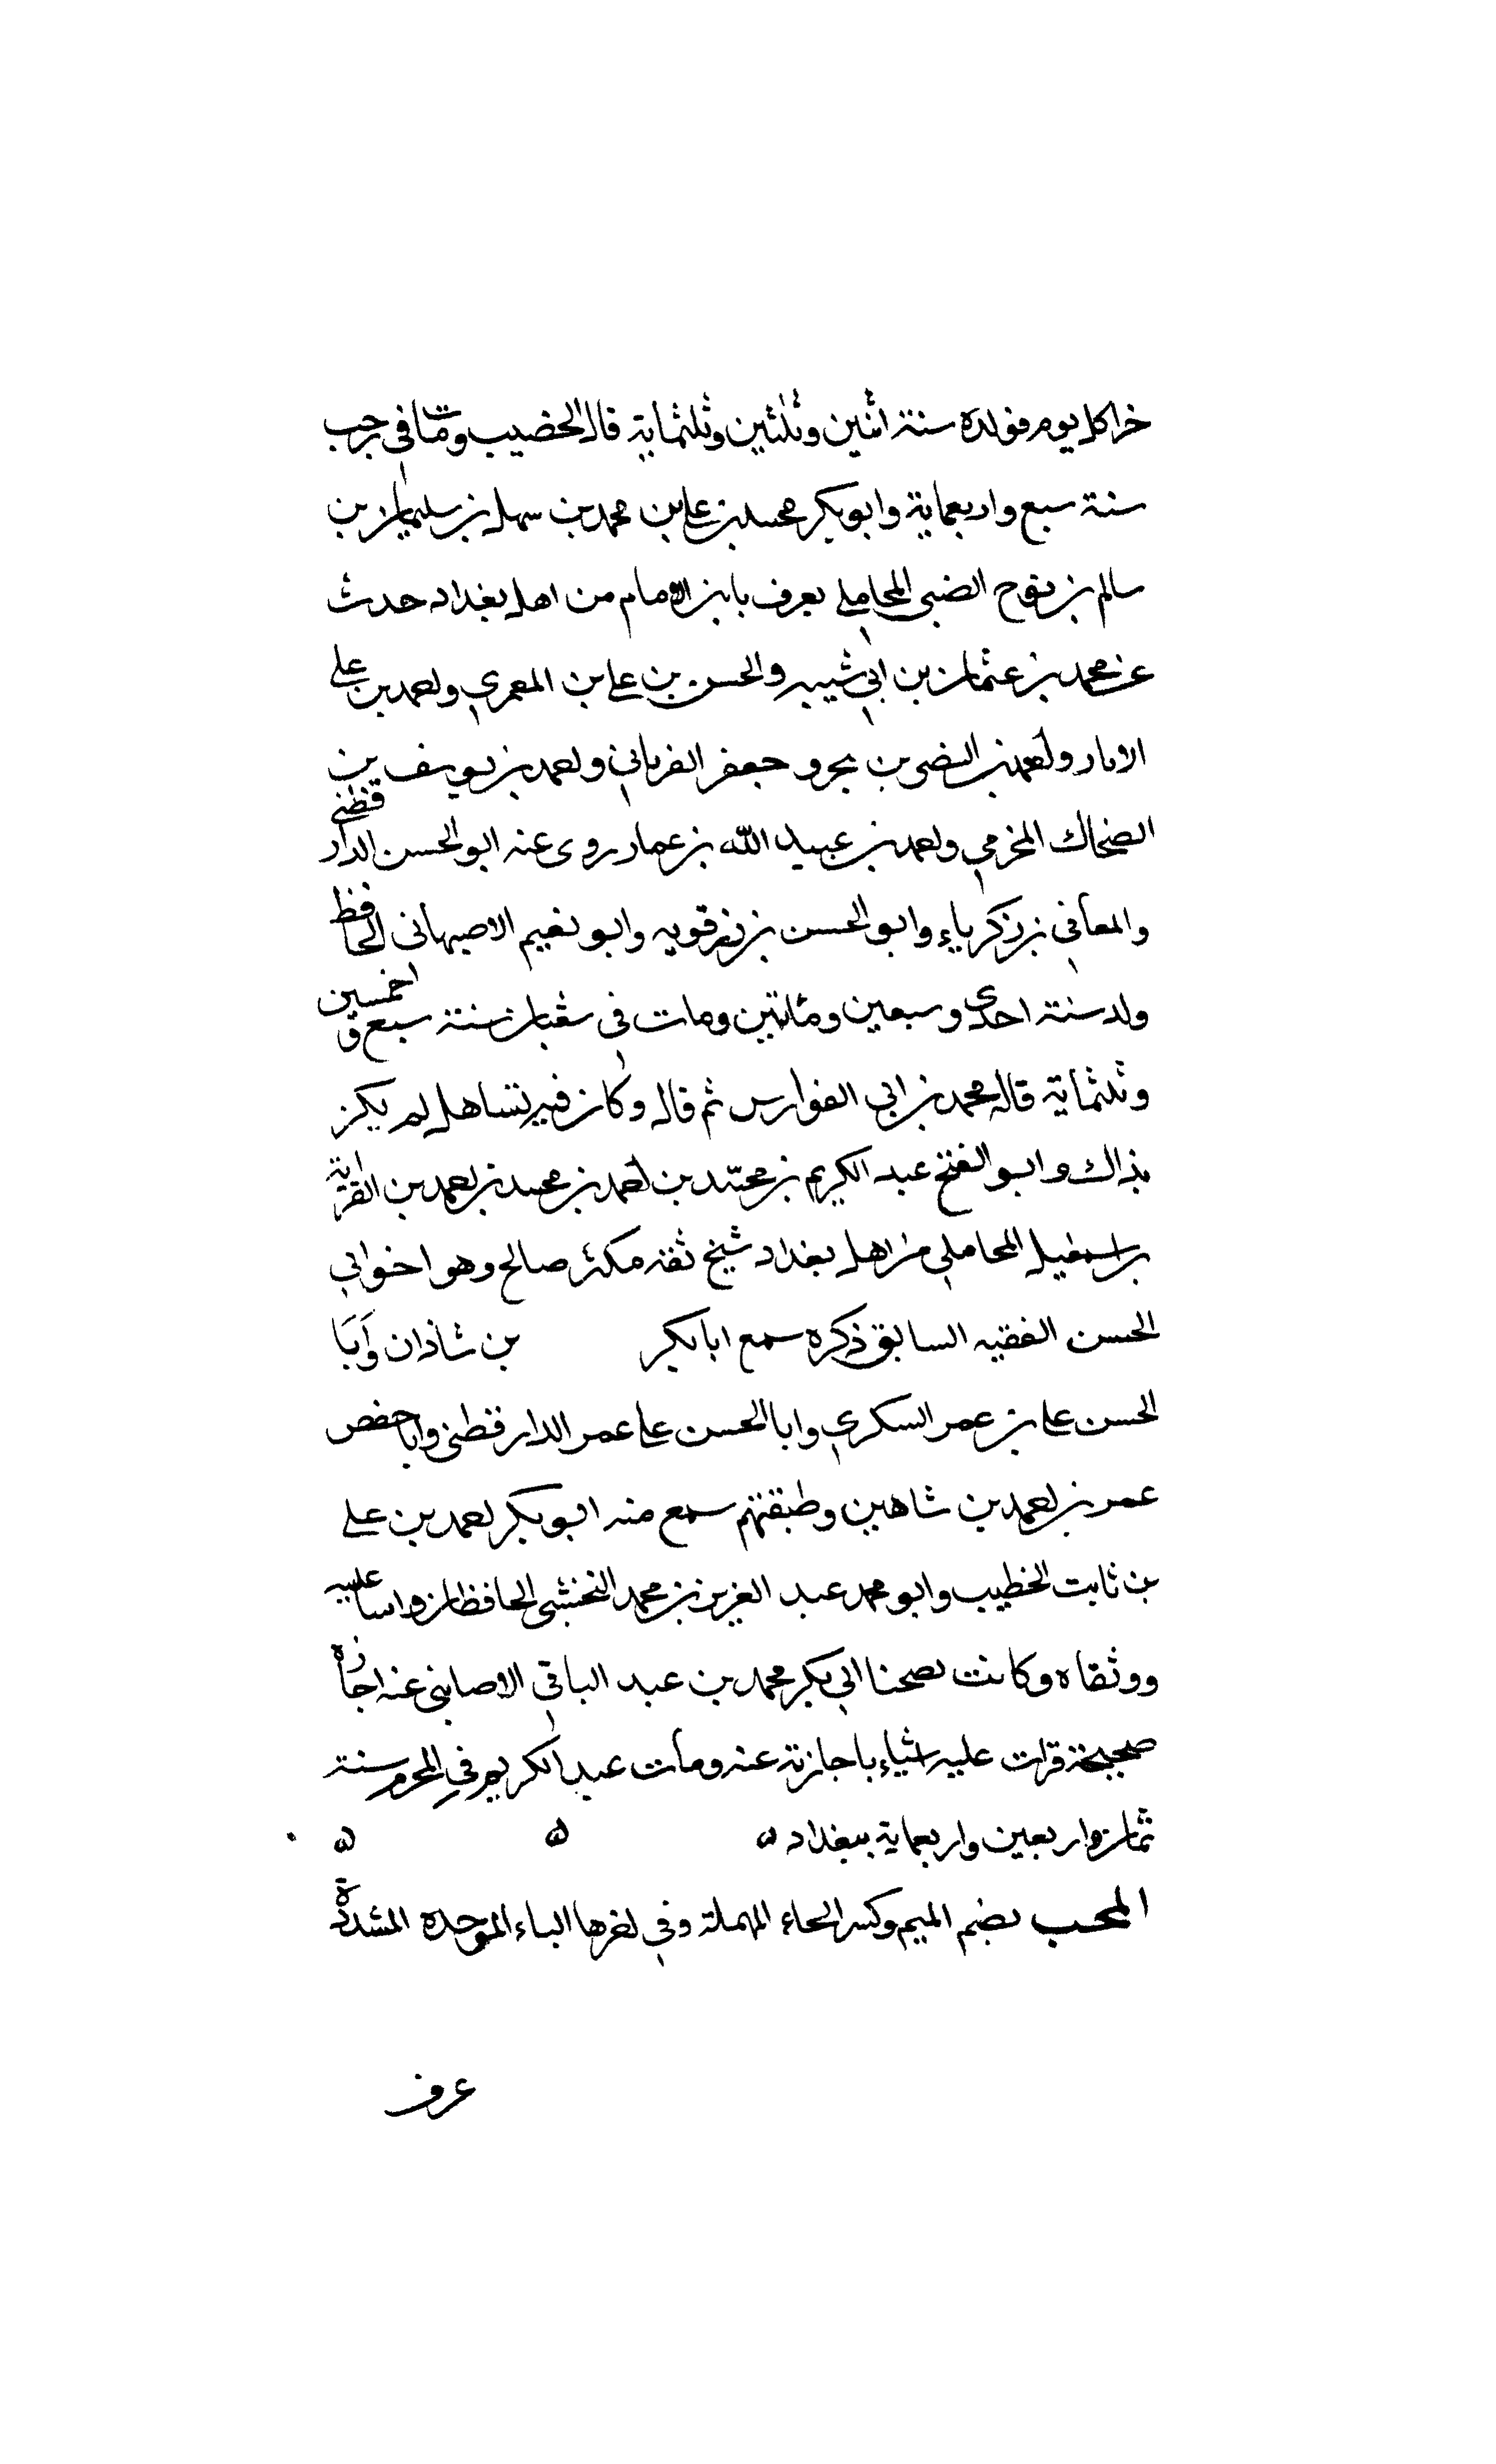 خراكل يوم مولده سنة اثنين وثلثين وثلثماية قال الخضيب ومات في رجب
سنة سبع واربعماية وابو بكر محمد بن علي بن محمد بن سهل بن سليمان بن
سالم بن نوح الضبي المحاملي يعرف بابن الامام من اهل بغداد حدث
عن محمد بن عثمان بن ابي شيبه والحسن بن علي بن المعمري واحمد بن علي
الابار واحمد بن النضر بن بحر و جعفر الفريابي واحمد بن يوسف بن
الضحاك المخرمي واحمد بن عبيد الله بن عمار روى عنه ابو الحسن الدارقطني
والمعافى بن زكرياء وابو الحسن بن زرقويه وابو نعيم الاصبهاني الحافظ
ولد سنة احدى وسبعين ومائتين ومات في شعبان سنة سبع وخمسين
وثلثماية قاله محمد بن ابي الفوارس ثم قال وكان فيه تساهل لم يكن
بذاك وابو الفتح عبد الكريم بن محمد بن احمد بن محمد بن احمد بن القراية
بن اسمعيل المحاملي من اهل بغداد شيخ ثقة مكثر صالح وهو اخو ابي
الحسن الفقيه السابق ذكره سمع ابا بكر بن شاذان وابا
الحسن علي بن عمر السكري وابا الحسن علي عمر الدارقطني وابا حفص
عمر بن احمد بن شاهين وطبقتهم سمع منه ابو بكر احمد بن علي
بن ثابت الخطيب وابو محمد عبد العزيز بن محمد النخشبي الحافظان واسا عليه
ووثقاه وكانت لصحنا ابي بكر محمد بن عبد الباقي الانصاري عنه اجازة
صحيحة قرات عليه اشياء باجازته عنه ومات عبد الكريم في المحرم سنة
ثمان واربعين واربعماية ببغداد ه ه ه
المحب بضم الميم وكسر الحاء المهملة وفي اخرها الباء الموحدة المشددة
عرف